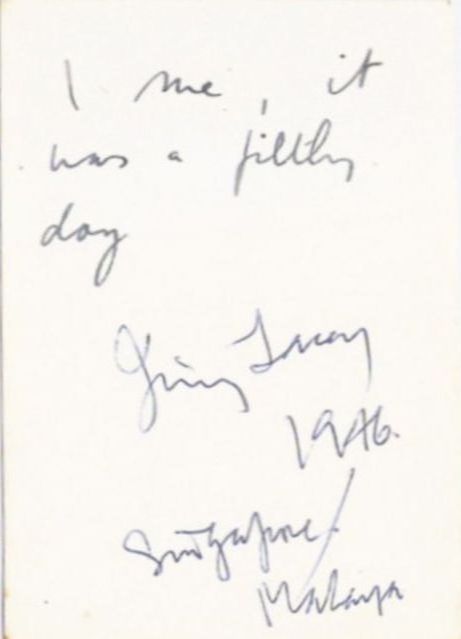 1 me, it
was a filthy
day
Ginger Lacey
1946.
Singapore/
Malaya